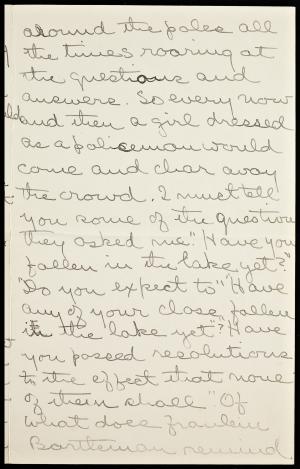 around the poles all
the times roaring at
the questions and
answers. So every now
and then a girl dressed
as a policeman would
come and clear away
the crowd. I must tell
you some of the questions
they asked me. "Have you
fallen in the lake yet?"
"Do you expect to" "Have
any of your close fallen
in the lake yet"? "Have
you passed resolutions
to the effect that none
of them shall" "Of
what does fraulein
Bartleman remind